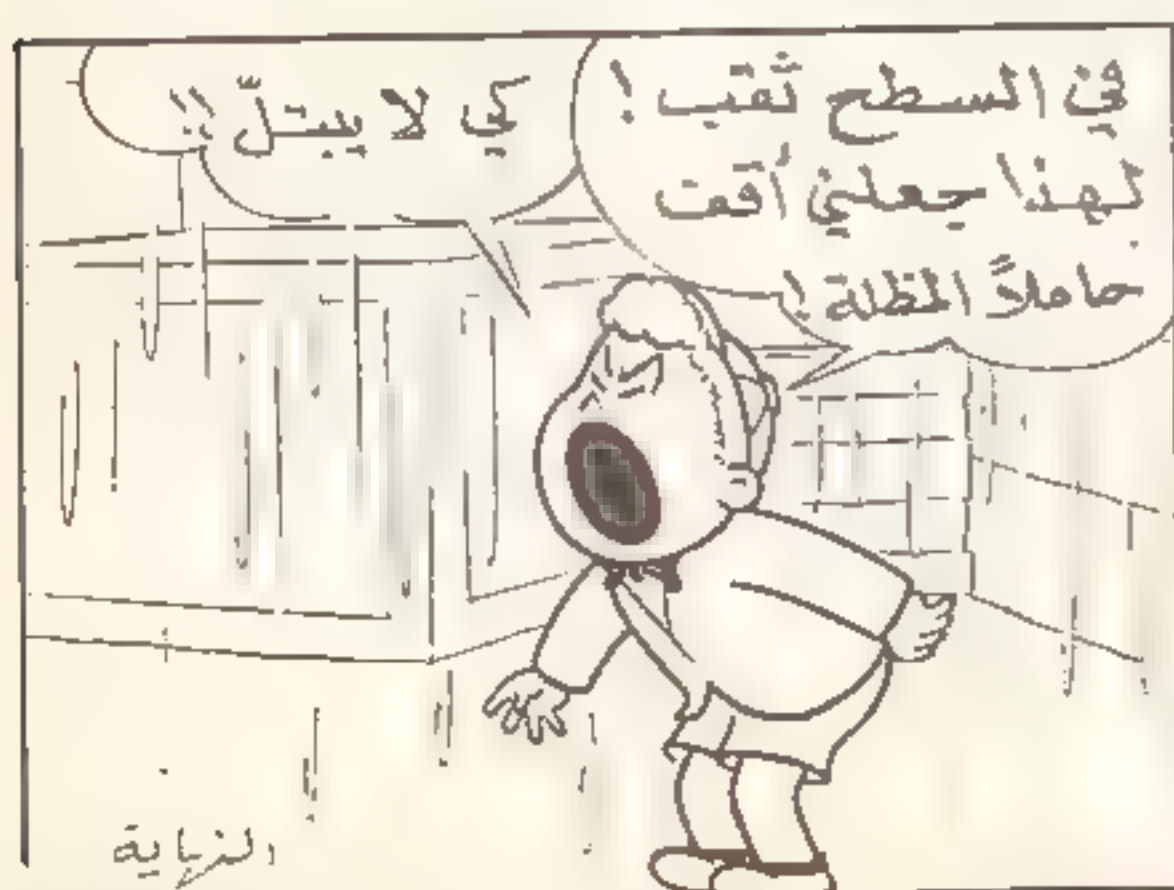 في السطح ثقب !
لهذا جعلني أقف
حاملاً المظلة !
كي لا يبتلّ !!
النهاية